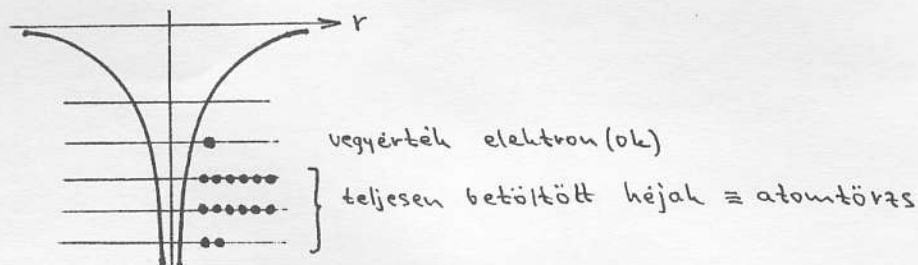 r
vegyérték elektron(ok)
teljesen betöltött héjak ≡ atomtörzs